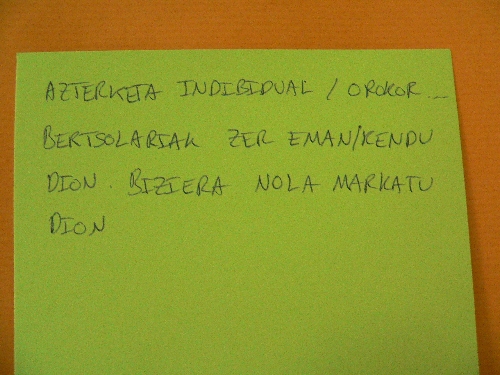 AZTERKETA INDIBIDUAL / OROKOR...
BERTSOLARIAK ZER EMAN/KENDU
DION. BIZIERA NOLA MARKATU
DION